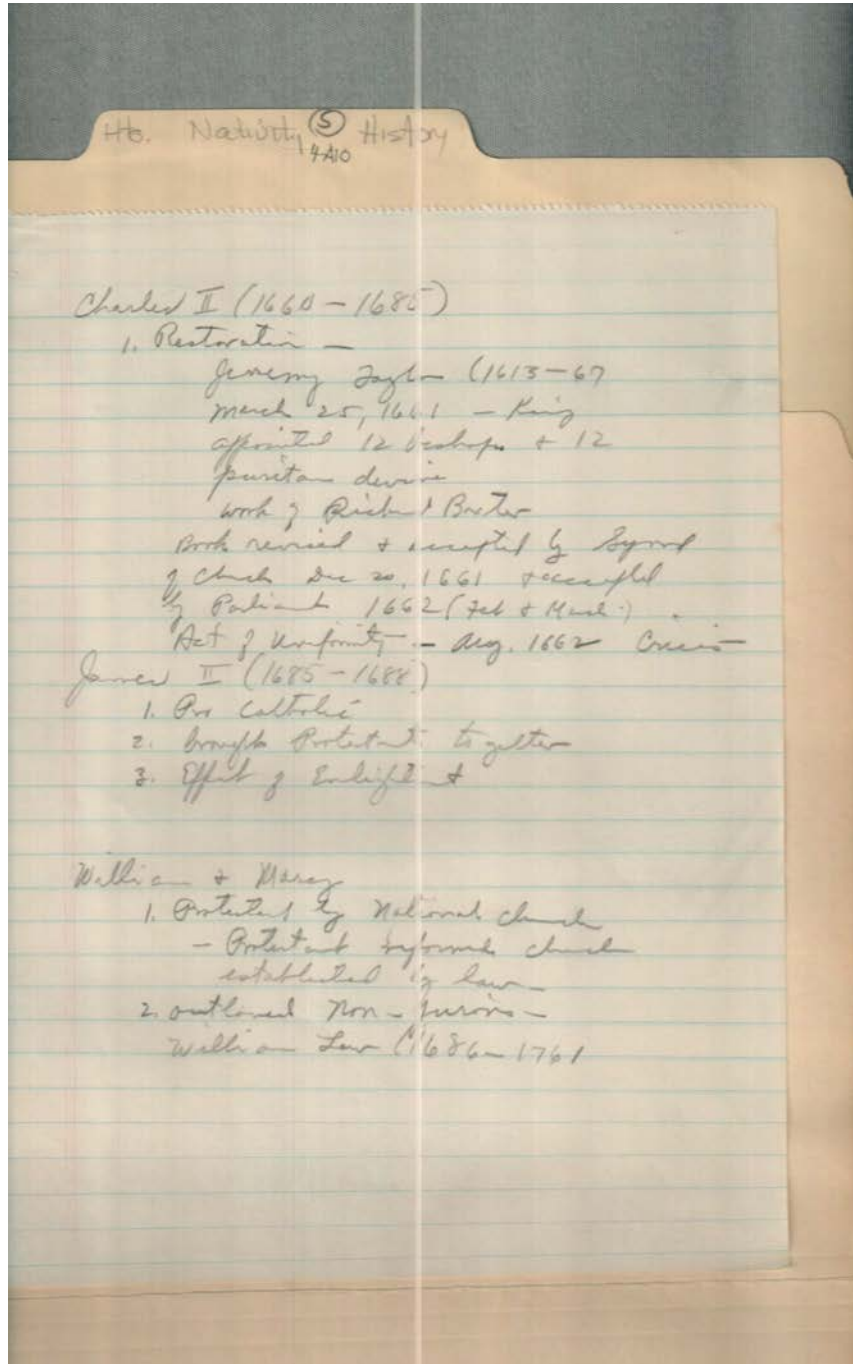 Hb. Nativity ⑤ History
4A10
Charles II (1660 - 1685)
1. Restoration -
Jeremy Taylor (1613-67
March 25, 1661 - King
appointed 12 bishops + 12
puritan devine
work of Richard Baxter
Book revised + accepted by Synod
of Church Dec 20, 1661 + accepted
by Parliament 1662 (Feb + March)
Act of Uniformity - Aug. 1662 Crisis
James II (1685 - 1688)
1. Pro Catholic
2. brought Protestants together
3. Effect of Enlightment
William + Mary
1. Protestant National church
- Protestant reformed church
established by law -
2. outlawed Non-Jurors -
William Law (1686-1761